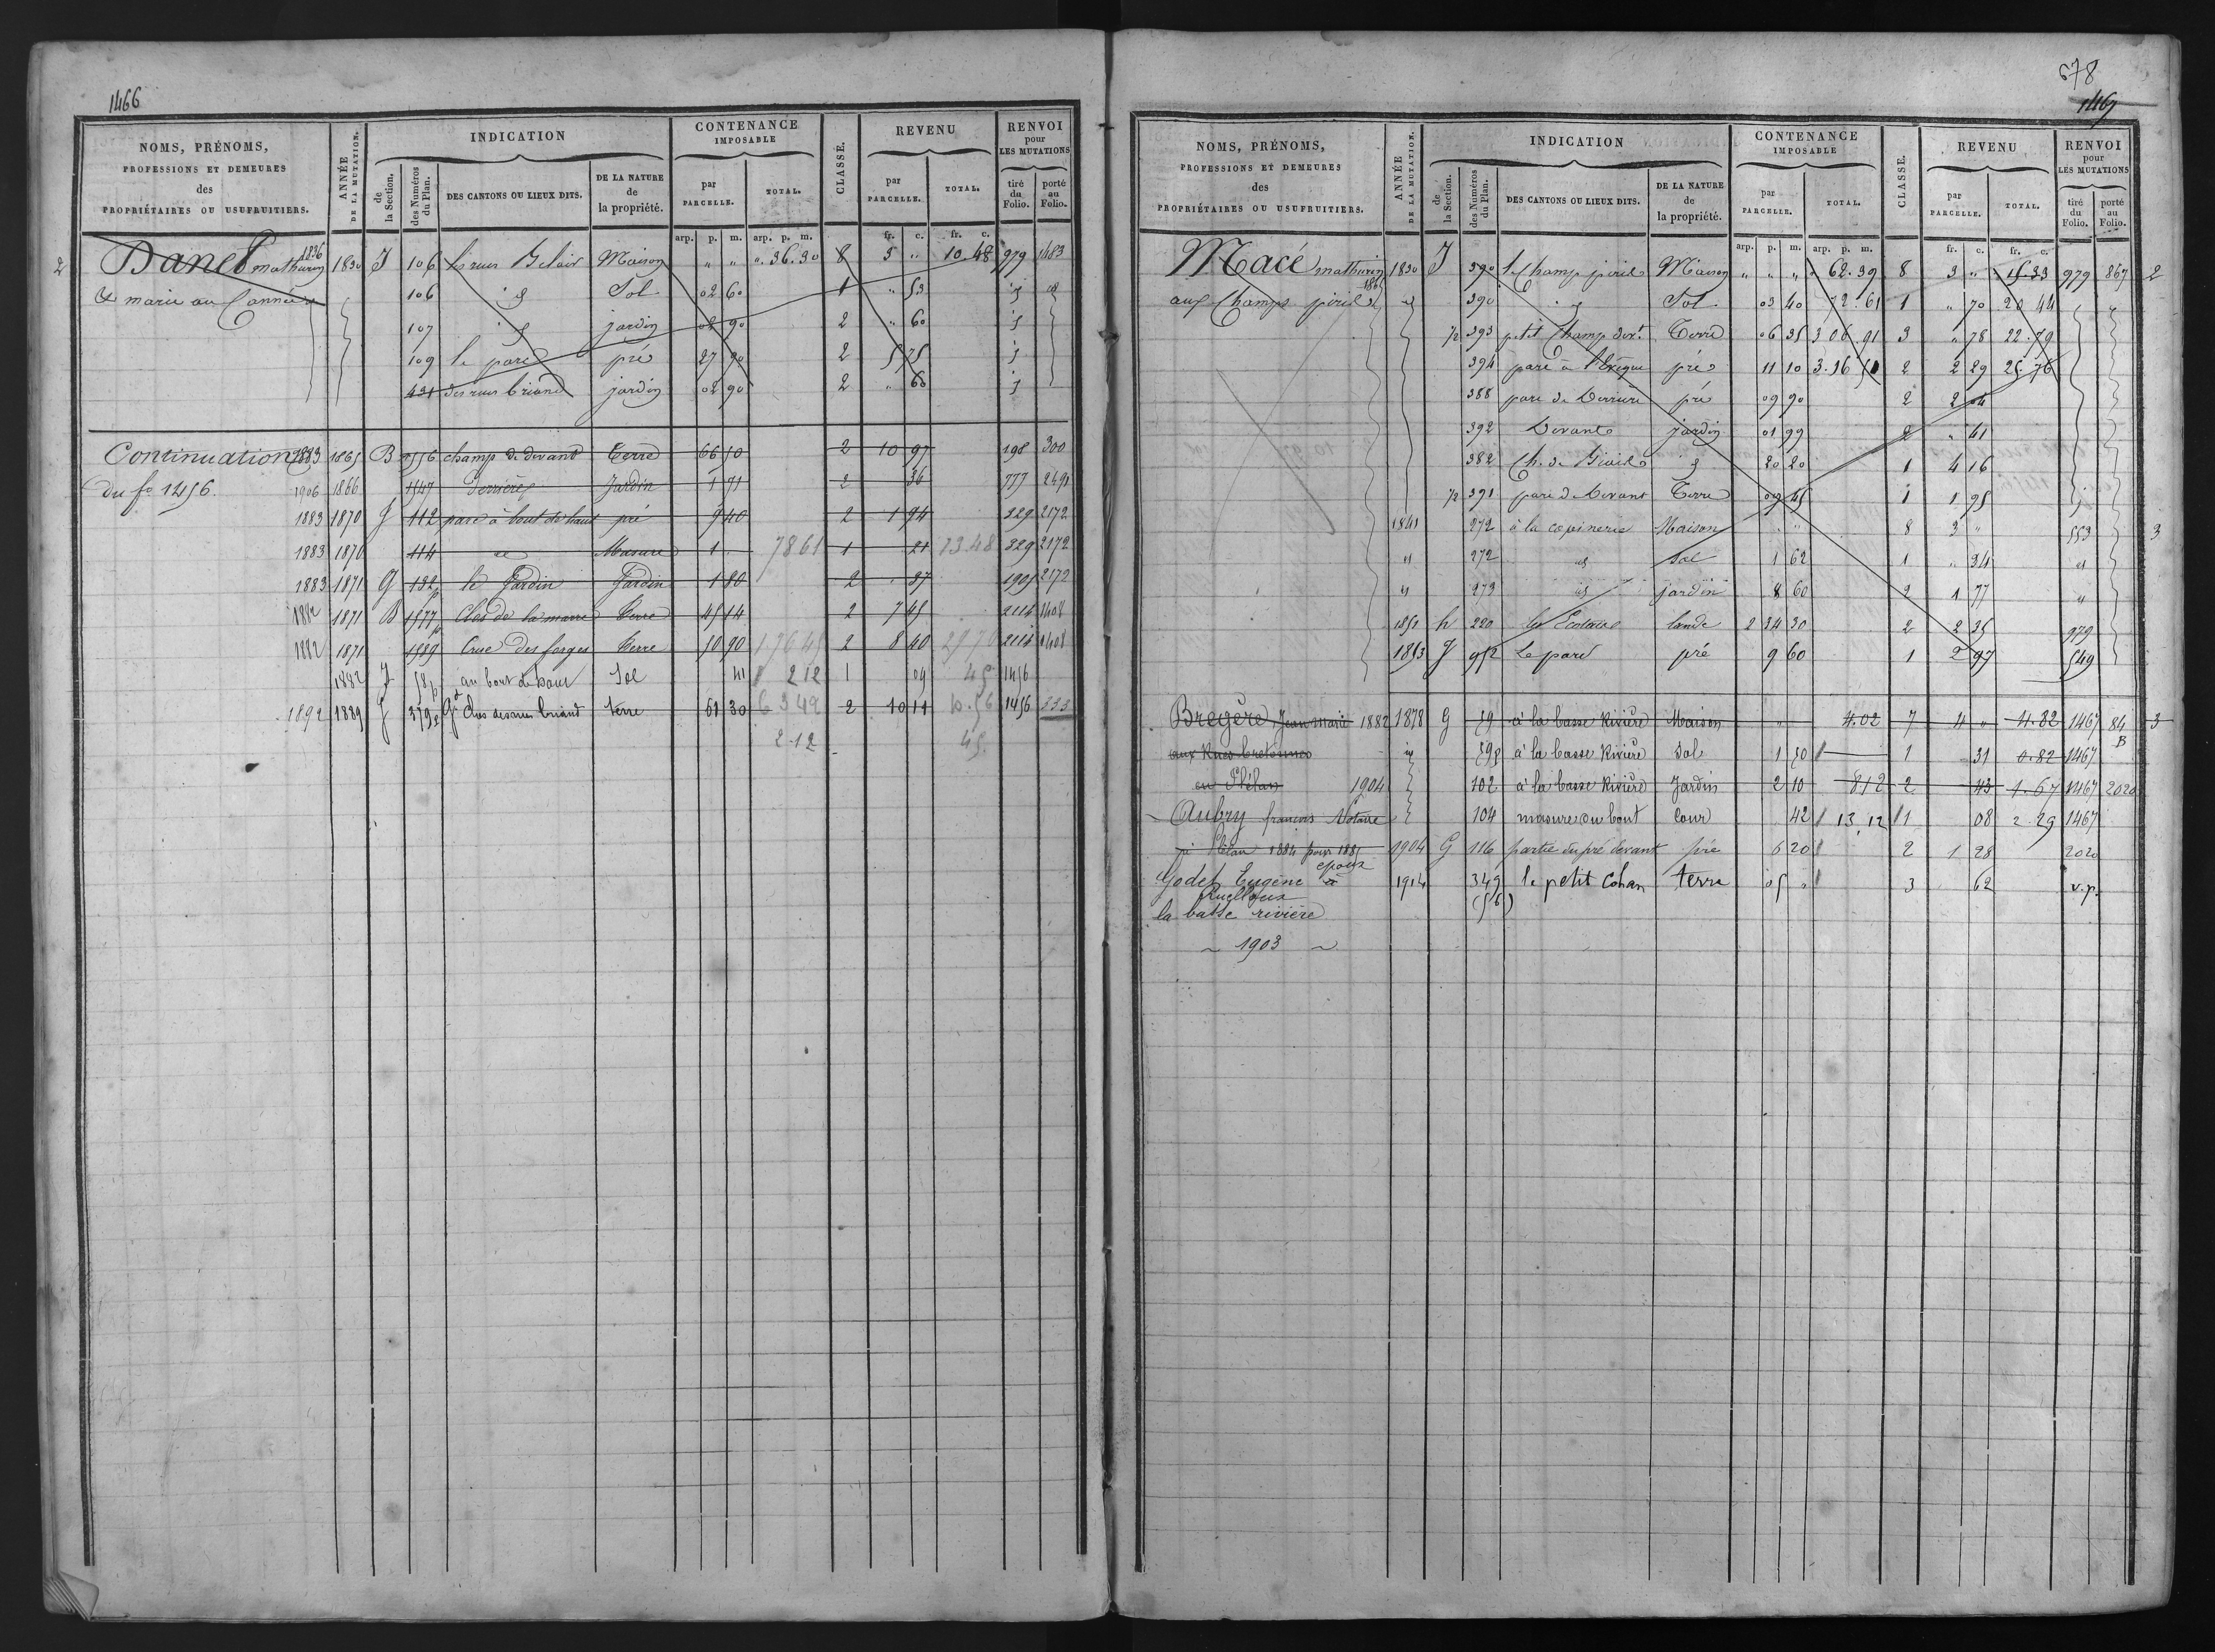 1466
NOMS, PRÉNOMS, PROFESSIONS ET DEMEURES des PROPRIÉTAIRES OU USUFRUITIERS.
ANNÉE DE LA MUTATION.
INDICATION
de la Section.
des Numéros du Plan.
DES CANTONS OU LIEUX DITS.
DE LA NATURE de la propriété.
CONTENANCE IMPOSABLE
par PARCELLE.
TOTAL.
CLASSE.
REVENU
par PARCELLE.
TOTAL.
RENVOI pour LES MUTATIONS
tiré du Folio.
porté au Folio.
arp. p. m. arp. p. m. fr. c. fr. c.
2 Danet mathurin 1836 1830 J 106 Maison " " " 36.30 8 5 " 10.48 979 1483
& marie au 106 id Sol 02 60 1 " 53 id id
107 id jardin 02 90 2 " 60 id
109 le parc pré 27 90 2 5 75 id
431 des rues briand jardin 02 90 2 " 60 id
Continuation 1883 1865 B 1556 champ de devant Terre 66 50 2 10 97 198 300
du fo 1456. 1906 1866 1547 Derrière Jardin 1 71 2 36 777 2491
1883 1870 J 112 parc à bout de haut pré 9 40 2 1 94 329 2172
1883 1870 114 id Masure 1 " 78 61 1 21 13.48 329 2172
1883 1871 G 132p le Jardin Jardin 1 80 2 37 1905 2172
1882 1871 B 1577p Clos de la marre Terre 45 14 2 7 45 2114 1408
1882 1871 1589 Cruc des forges Terre 50 90 176 45 2 8 40 29 70 2114 1408
1882 J 58p au bout de haut Sol 41 2 12 1 09 45 1456
1892 1889 J 379p Gd Clos des rues briand terre 61 30 63 42 2 10 11 10.56 1456 333
2.12 45
678
1467
NOMS, PRÉNOMS, PROFESSIONS ET DEMEURES des PROPRIÉTAIRES OU USUFRUITIERS.
ANNÉE DE LA MUTATION.
INDICATION
de la Section.
des Numéros du Plan.
DES CANTONS OU LIEUX DITS.
DE LA NATURE de la propriété.
CONTENANCE IMPOSABLE
par PARCELLE.
TOTAL.
CLASSE.
REVENU
par PARCELLE.
TOTAL.
RENVOI pour LES MUTATIONS
tiré du Folio.
porté au Folio.
arp. p. m. arp. p. m. fr. c. fr. c.
Macé mathurin 1830 J 390 le Champ piriel Maison " " " " 62.39 8 3 " 15.33 979 867 2
aux Champs piriel id 390 id Sol 03 40 72.61 1 " 70 20 44
1/2 393 petit Champ devt Terre 06 35 3 06 91 3 " 78 22.79
394 parc à l'Evêque pré 11 10 3.16 51 2 2 29 25 76
388 parc de Derrière pré 09 90 2 2 04
392 Devant jardin 01 99 2 " 41
382 Ch. de id 20 20 1 4 16
1/2 391 parc de Devant Terre 09 45 1 1 95
1841 272 à la copinerie Maison " " 8 3 " 553 3
" 272 id Sol 1 62 1 " 34 "
" 273 id jardin 8 60 2 1 77 "
1850 h 220 lande 2 34 30 2 2 35 979
1853 J 952 Le parc pré 9 60 1 2 97 549
Bregère Jean marie 1882 1878 G 79 à la basse Rivière Maison " 4.02 7 4 " 4.82 1467 84 B 3
aux Rues bretonnes id à la basse Rivière Sol 1 50 1 31 0.82 1467
en Plélan 1904 102 à la basse Rivière Jardin 2 10 8 12 2 43 1.67 1467 2020
Aubry françois Notaire 104 masure au bout Cour 42 13,12 1 08 2.29 1467
à Plélan 1884 pour 1885 1904 G 116 partie du pré devant pré 6 20 2 1 28 2020
Godet Eugène époux 1914 349 le petit Cohan terre 05 " 3 62 v.p.
Ruelloux à (56)
la basse rivière
~ 1903 ~